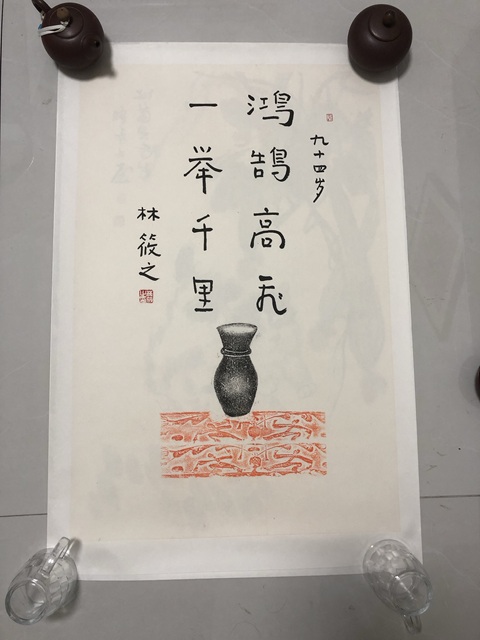 九十四岁
鸿鹄高飞
一举千里
林筱之